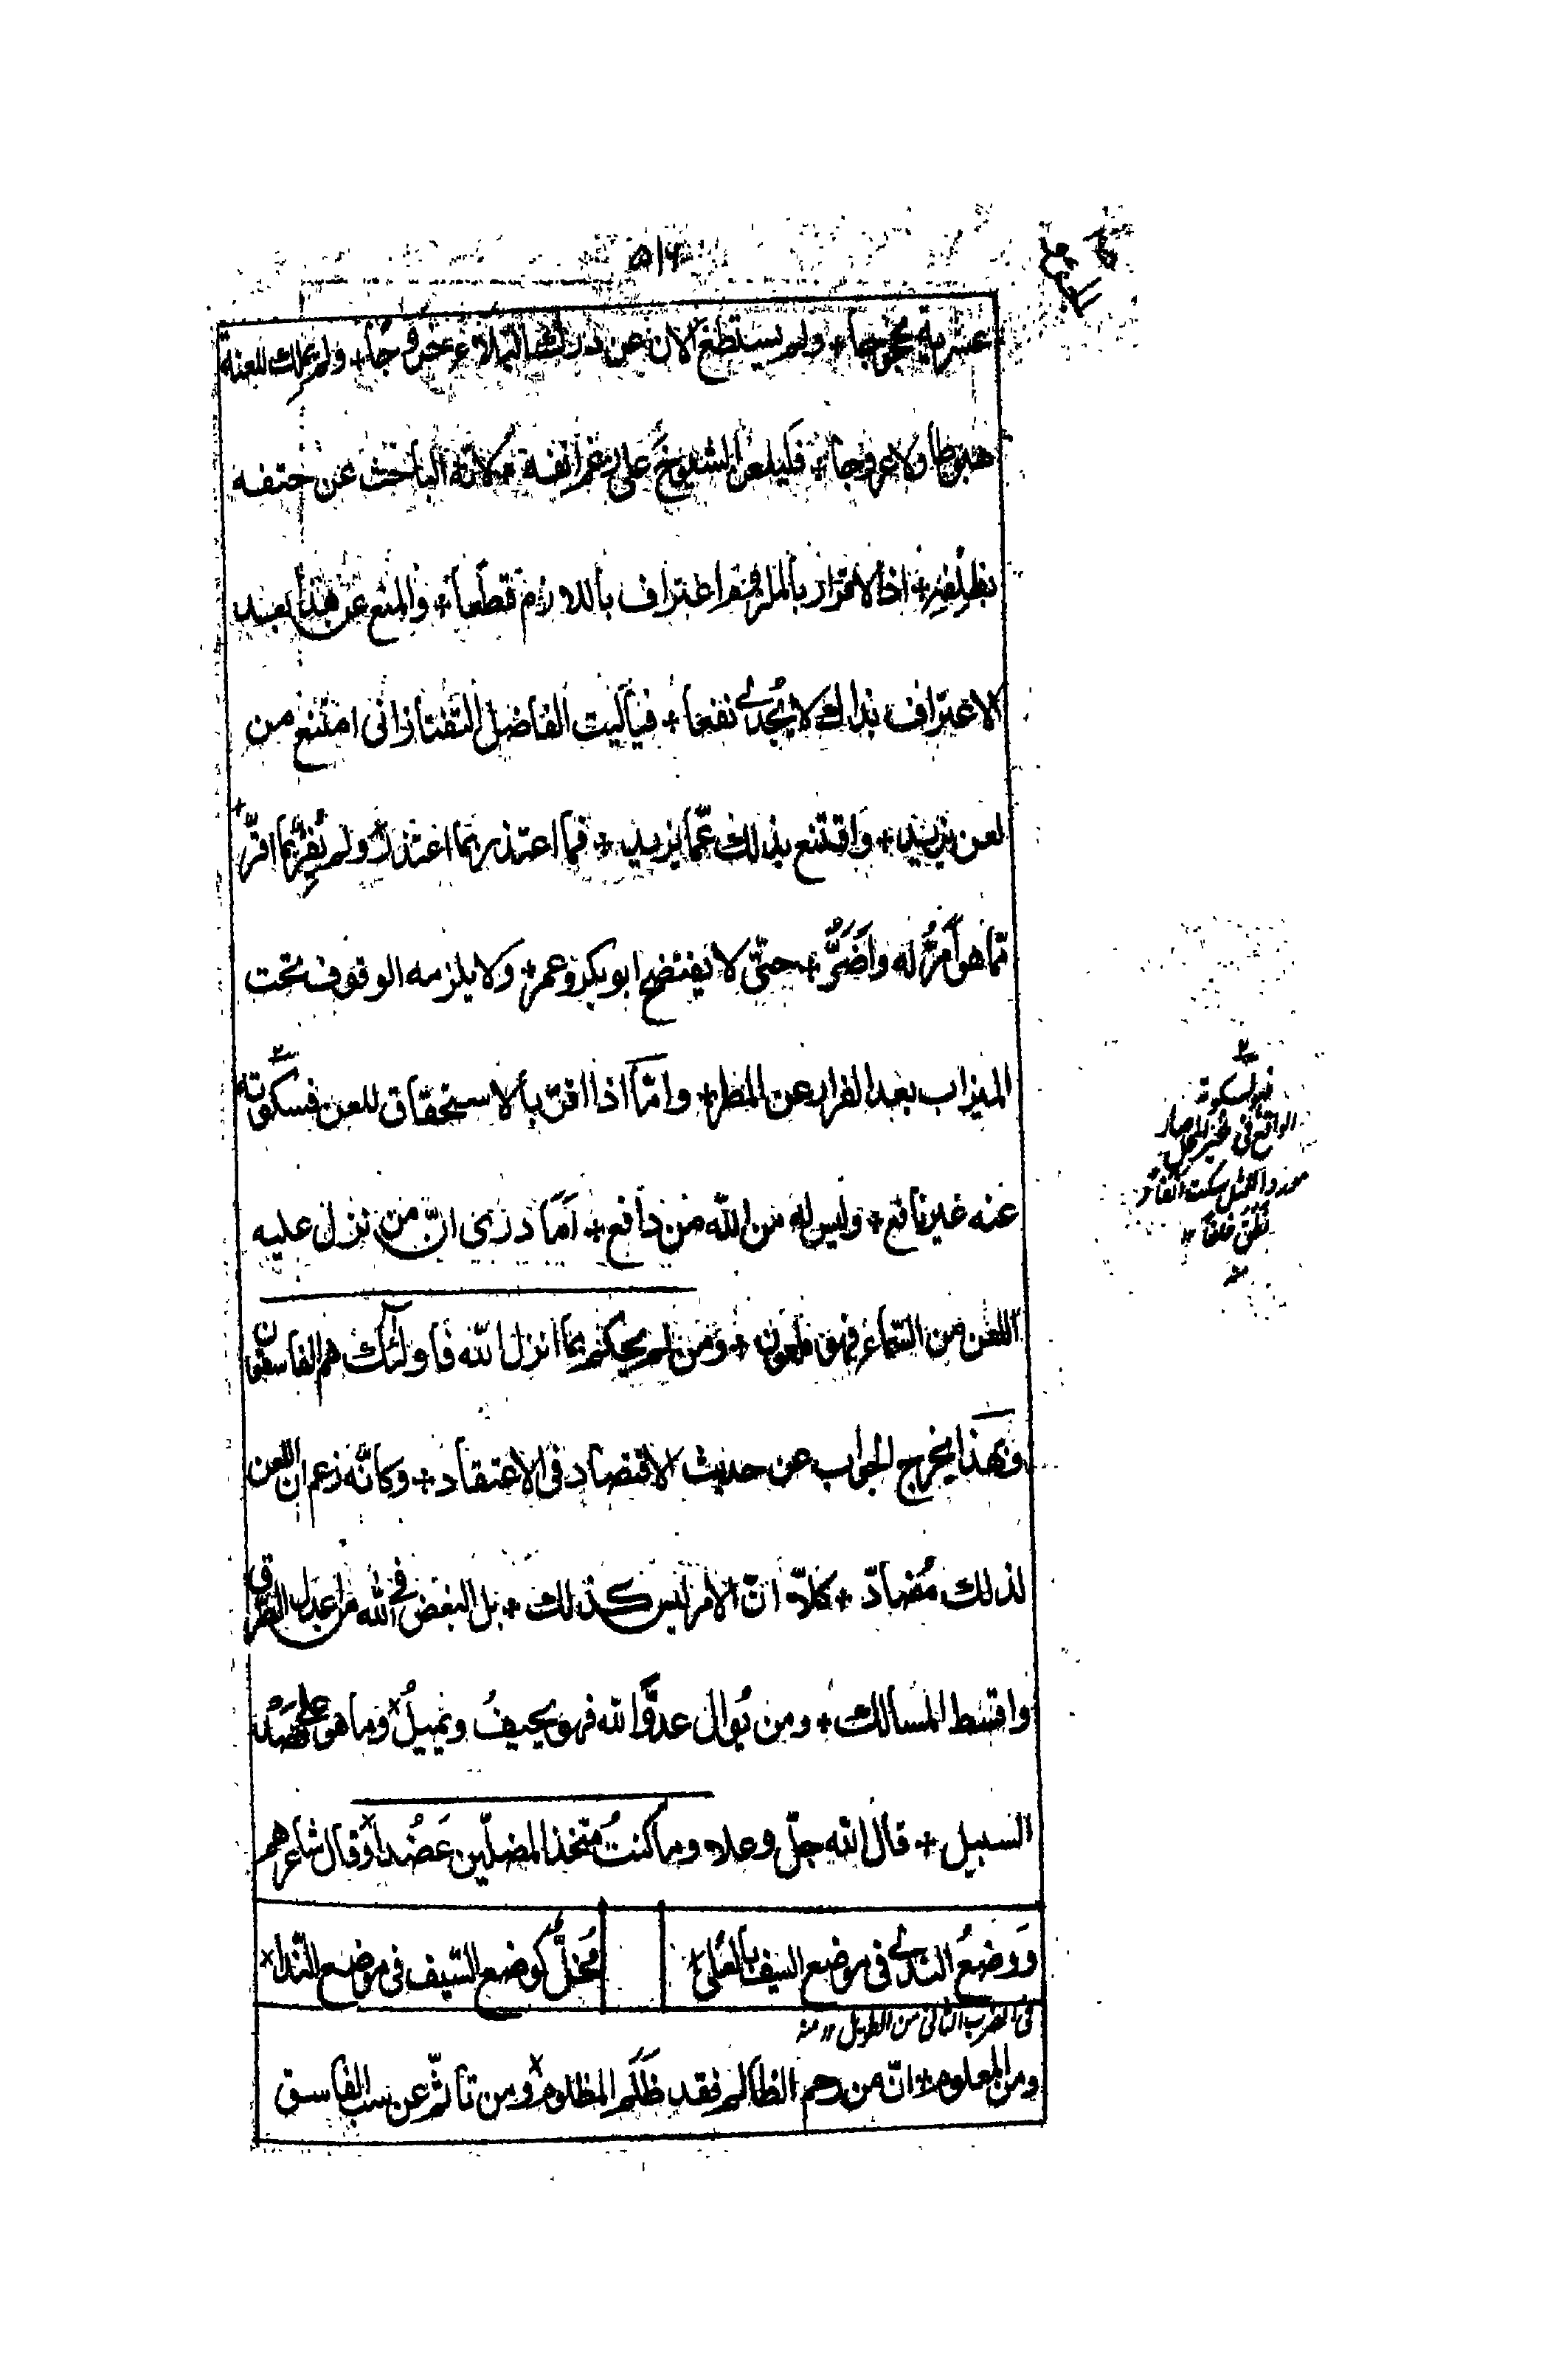 ٥١٦
ولم يستطع الان عن درك خروجا + ولم يملك للعنة
هبوطا ولا عروجا + فليلعن الشيوخ على رغم انفه + لانه الباحث عن حتفه
بظلفه + اذ الاقرار بالملزوم اعتراف باللازم قطعا + والمنع عن هذا بعد
الاعتراف بذلك لا يجدي نفعا + فياليت الفاضل التفتازانى امتنع من
لعن يزيد + واقتنع بذلك عما يزيد + فما اعتذر بما اعتذر ولم يفر بما اقر +
مما هو امرّ له واضرّ + حتى لا يفتضح ابوبكر وعمر + ولا يلزمه الوقوف تحت
الميزاب بعد الفرار عن المطر + وامّا اذا اقرّ بالاستحقاق للعن فسكوته
عنه غير نافع + وليس له من الله من دافع + اما درى انّ من نزل عليه
اللعن من السماء فهو ملعون + ومن لم يحكم بما انزل الله فاولئك هم الفاسقون
وبهذا يخرج الجواب عن حديث الاقتصاد فى الاعتقاد + وكانّه زعم ان اللعن
لذلك مُضادّ + كلّا انّ الامر ليس كذلك + بل البغض فى الله من اعدل الطرق
واقسط المسالك + ومن يُوال عدوّ الله فهو يحيفُ ويميلُ + وما هو على قصد
السبيل + قال الله جلّ وعلا وما كنتُ متّخذ المضلّين عَضُدا + وقال شاعرهم
وَوضعُ الندى فى موضع السيف بالعُلى + مُخلٌّ كوضع السّيف فى موضع النّدا +
فى الضرب الثانى من الطويل ١٢ منه
ومن المعلوم + انّ من رحم الظالم فقد ظَلَمَ المظلوم + ومن تاثّم عن سب الفاسق
سكوته
الواقع فى
سكت الفا
نطق خلفا ١٢
منه